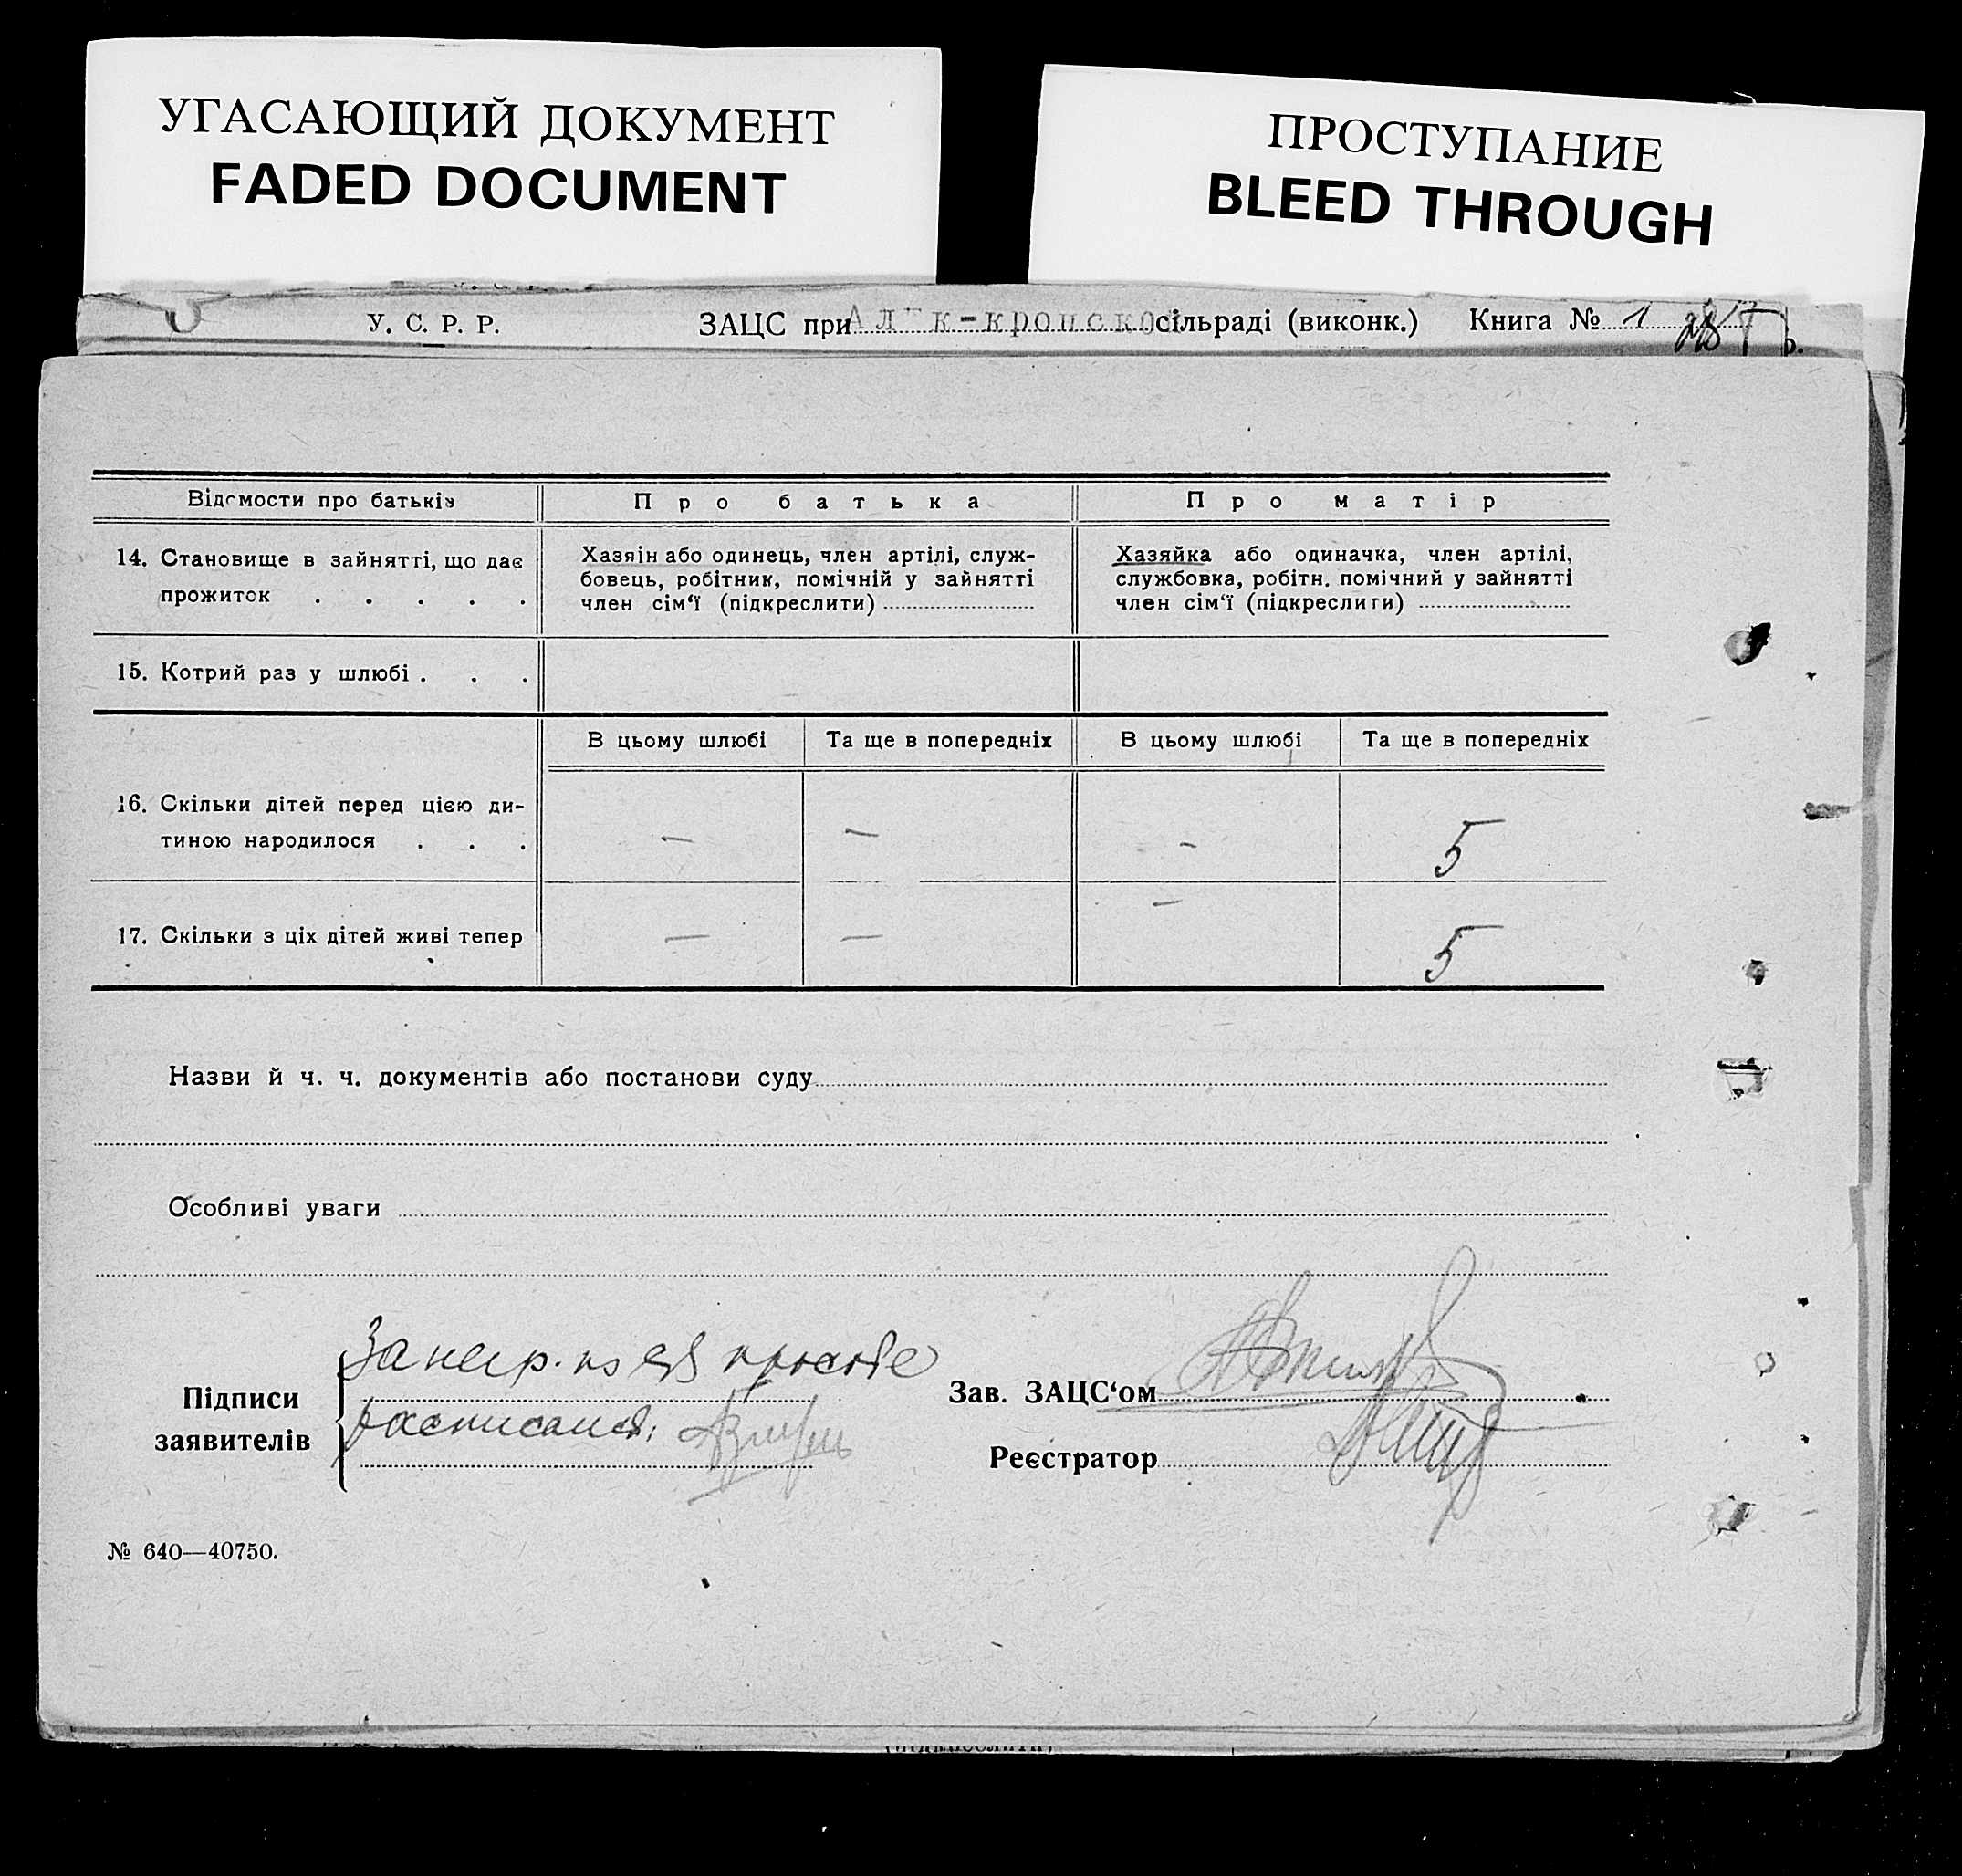 УГАСАЮЩИЙ ДОКУМЕНТ
FADED DOCUMENT
ПРОСТУПАНИЕ
BLEED THROUGH
У. С. Р. Р.
ЗАЦС при сільраді (виконк.) Книга № 1
Відомости про батьків
Про батька
Про матір
14. Становище в зайнятті, що дає
прожиток . . . . .
Хазяін або одинець, член артілі, служ-
бовець, робітник, помічній у зайнятті
член сім‘ї (підкреслити)
Хазяйка або одиначка, член артілі,
службовка, робітн. помічний у зайнятті
член сім‘ї (підкреслити)
15. Котрий раз у шлюбі . . .
В цьому шлюбі
Та ще в попередніх
В цьому шлюбі
Та ще в попередніх
16. Скільки дітей перед цією ди-
тиною народилося . . .
— — - 5
17. Скільки з ціх дітей живі тепер
— — — 5
Назви й ч. ч. документів або постанови суду
Особливі уваги
Підписи
заявителів
За негр. по її просьбе
расписался:
Зав. ЗАЦС‘ом
Реєстратор
№ 640—40750.